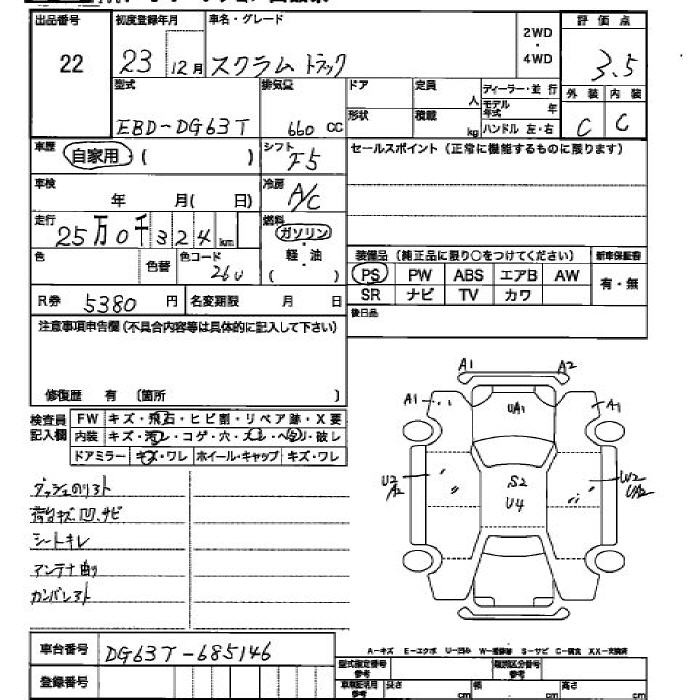 出品番号 初度登録年月 車名・グレード 2WD・4WD 評価点
22 23 12月 スクラム トラック 3.5
型式 排気量 ドア 定員 人 ディーラー・並行 外装 内装
EBD-DG63T 660 cc 形状 積載 kg モデル年式 年 ハンドル 左・右 C C
車歴 自家用 ( ) シフト F5 セールスポイント(正常に機能するものに限ります)
車検 年 月( 日) 冷房 A/C
走行 25万0千324km 燃料 ガソリン・軽・油 ( )
色 色替 色コード 26U 装備品(純正品に限り○をつけてください) 新車保証書
PS PW ABS エアB AW 有・無
R券 5380 円 名変期限 月 日 SR ナビ TV カワ
注意事項申告欄(不具合内容等は具体的に記入して下さい) 後日品
修復歴 有 〔箇所 〕
検査員記入欄 FW キズ・飛石・ヒビ割・リペア跡・X要
内装 キズ・汚レ・コゲ・穴・スレ・ヘタリ・破レ
ドアミラー キズ・ワレ ホイール・キャップ キズ・ワレ
A1 A2
A1 UA1 A1
U2 A2 S2 U4 U2 UA2
荷台キズ凹、サビ
シートキレ
アンテナ曲り
車台番号 DG63T-685146
A-キズ E-エクボ U-凹み W-補修跡 S-サビ C-腐食 XX-交換済
登録番号 型式指定番号 参考 類別区分番号 参考
長さ cm 幅 cm 高さ cm